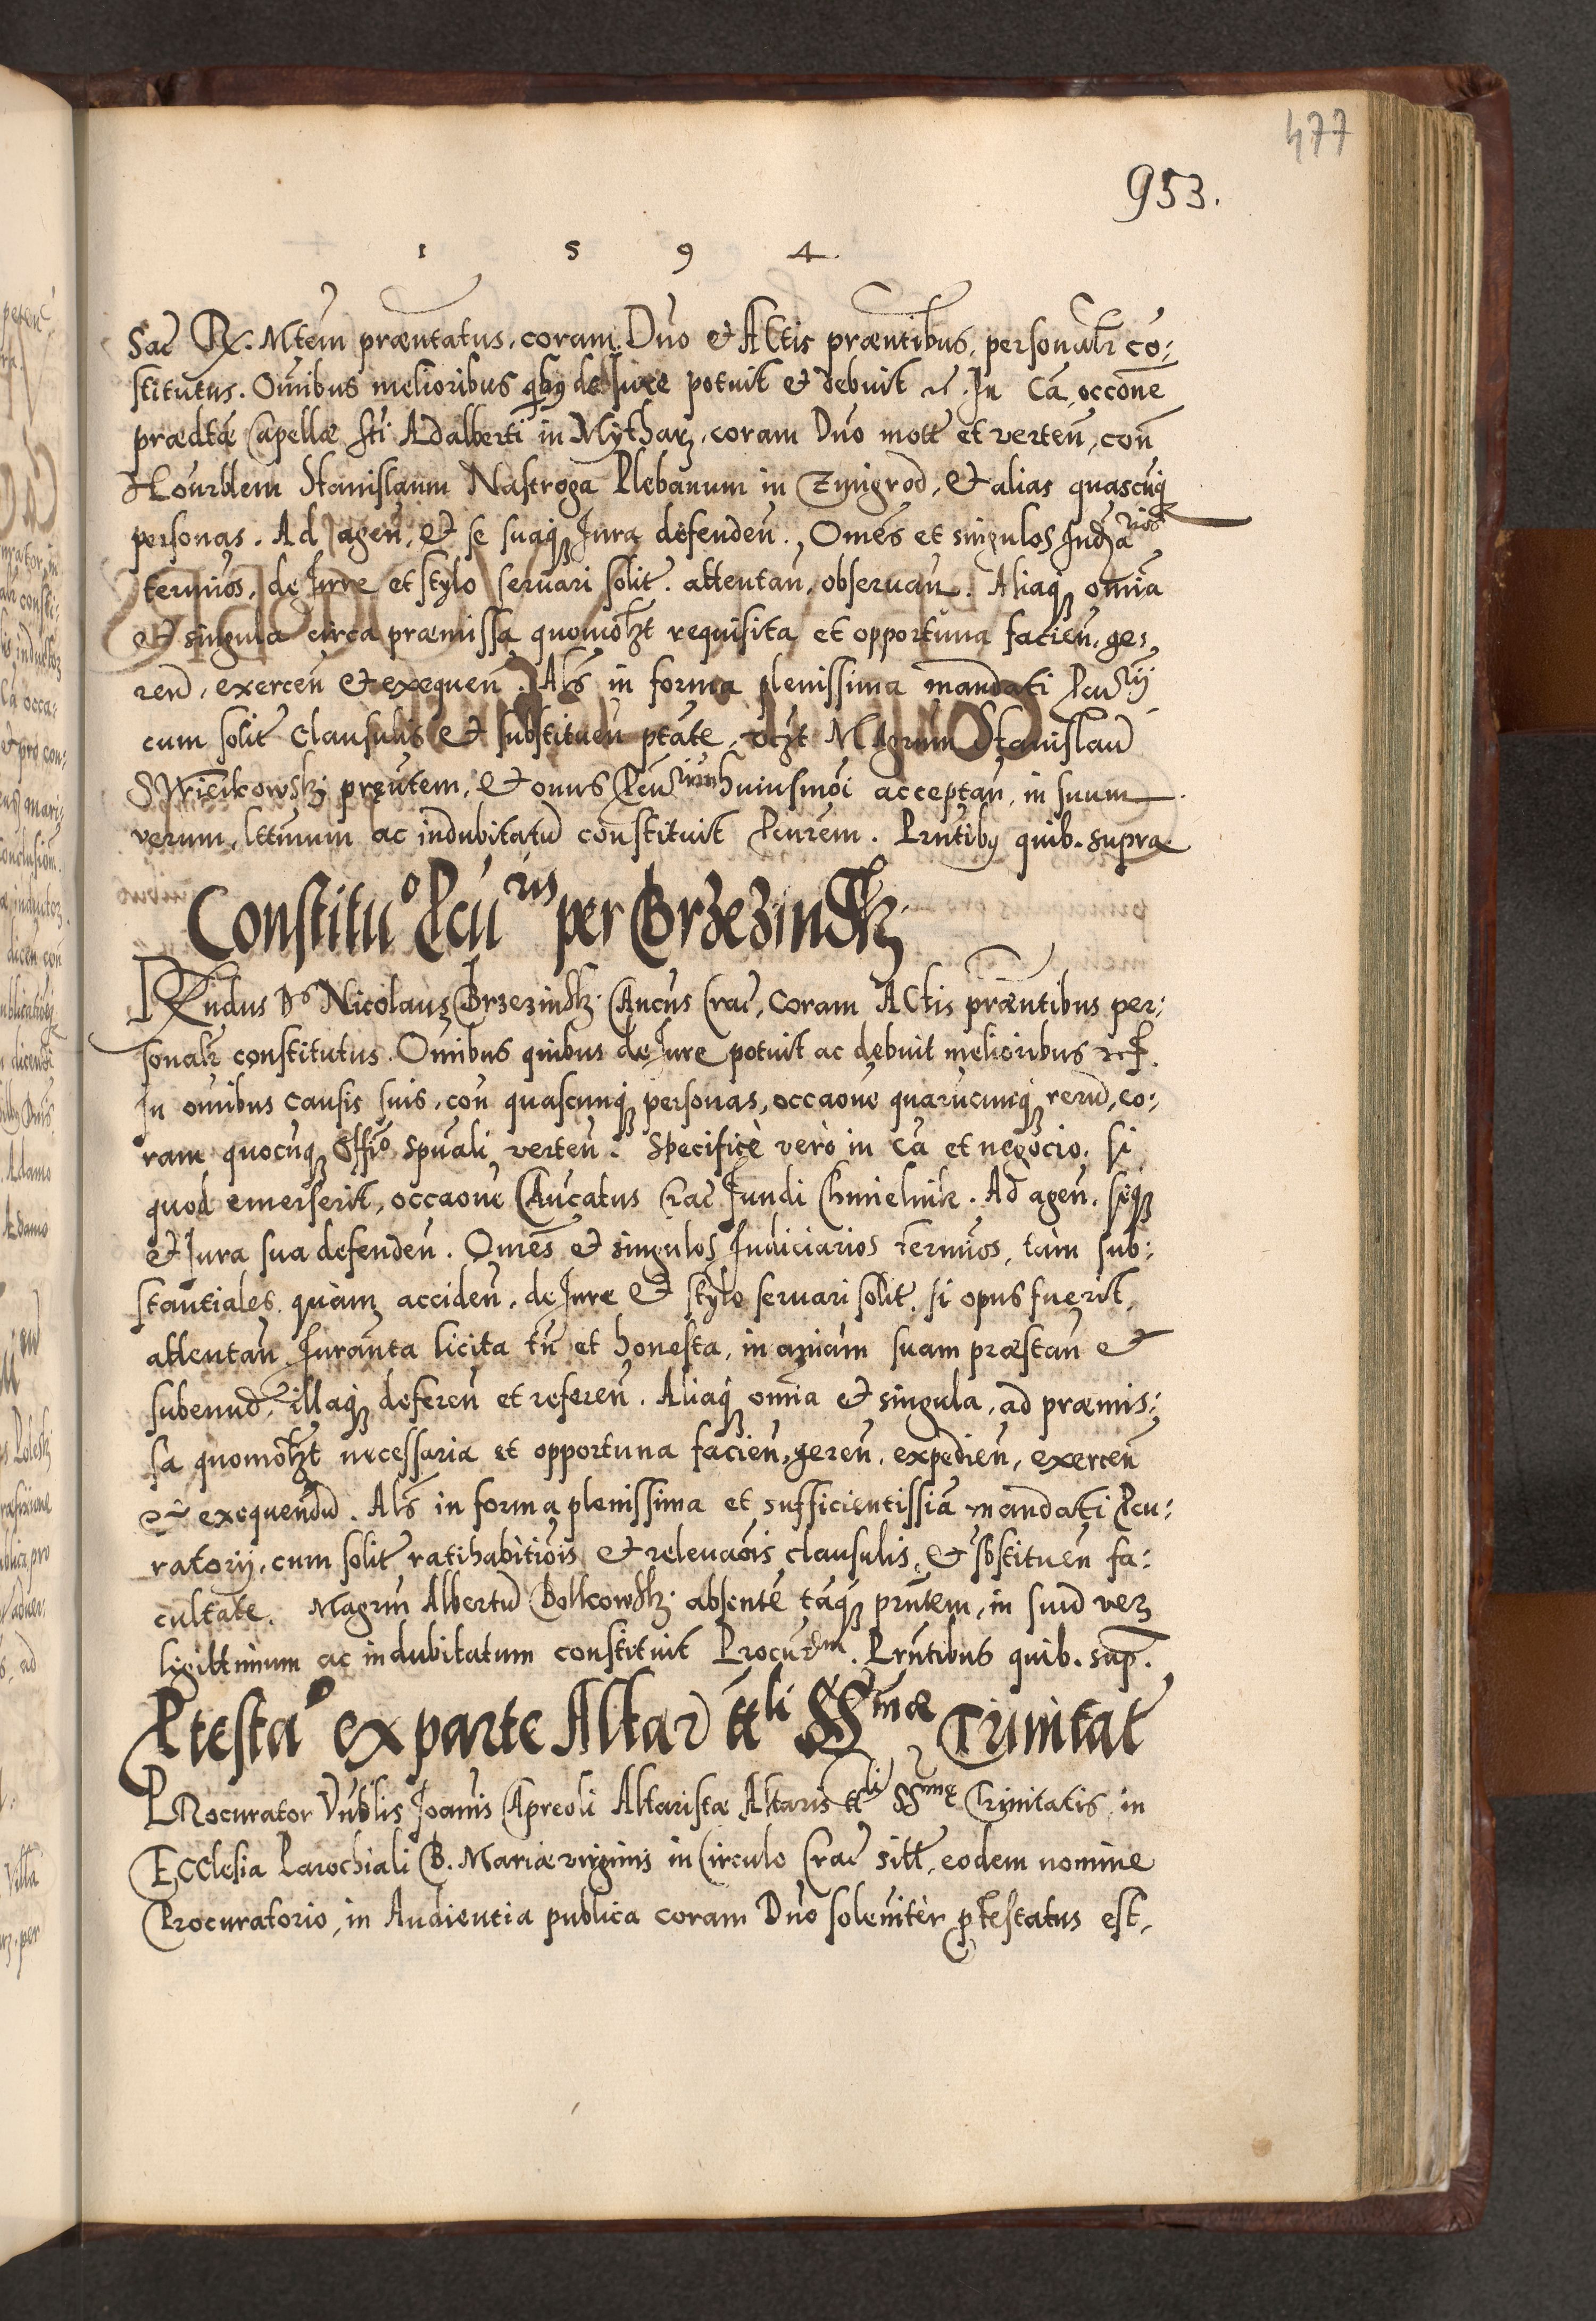 477
953.
1 5 9 4
Sac̄ Rx. Mtem̄ praentatus, coram Dn̄o et Actis praentibus, personalr̄ co:
stitutus. Om̄ibus melioribus qbꝫ de Jure potuit et debuit etc. In Cā occōne
praedtae Capellae Sti Adalberti in Mytharz, coram Dn̄o mott̄ et verteń, con̄
Honrblem Stanislaum Nastroga Plebanum in Zmigrod, et alias quascūqꝫ
personas. Ad agen̄, et se suaqꝫ Jura defenden̄. Omēs et singulos Judꝫarios
termīos, de Jure et stylo seruari solit. attentan̄, obseruan̄. Aliaqꝫ omīa
et singula circa praemissa quomōlꝫt requisita et opportuna facien̄, ge,
ren̄d, exercen̄ et exequen̄. Als̄ in forma plenissima mandati Pcurīj
cum solit̄ Clausulis et substituen̄ ptāte, vꝫt Magrūm Stanislaū
Swiecikowskj prēntem, et onus Pcurīum huiusmōi acceptan̄, in suum
verum, lttimum ac indubitatū constituit Pcurēm. Prn̄tibꝫ quib. supra
Constituo Pcuris per Brzezinskꝫ
RXndus Ds Nicolaus Brzezinskꝫ Cancūs Crac̄, coram Actis prāentibus per:
sonalr̄ constitutus. Om̄ibus quibus de Jure potuit ac debuit melioribus etc.
In omībus Causis suis, con̄ quascunqꝫ personas, occaōne quarūcunqꝫ rerū, co:
ram quocūqꝫ Offio spūali verten̄. Specificè verò in Cā et negōcio, si
quod emerserit, occaōne Cancatus Crac̄ Fundi Chmielnik. Ad agen̄. seqꝫ
et Jura sua defenden̄. Omēs et singulos Judiciarios termīos, tàm sub:
stantiales quàm acciden̄, de Jure et stylo seruari solit̄. si opus fuerit,
attentan̄ Juran̄ta licita tn̄ et honesta, in aīam suam praestan̄ et
subeund, illaqꝫ deferen̄ et referen̄. Aliaqꝫ omīa et singula, ad praemis:
sa quomōlꝫt necessaria et opportuna facien̄, geren̄, expedien̄, exercen̄
et exequendū. Als̄ in forma plenissima et sufficientissīa mandati Pcu:
ratorij, cum solit̄ ratihabitiōis et releuaōis clausulis, et sbstituen̄ fa:
cultate. Magrūm Albertū Bolkowskꝫ absentē tāqꝫ prn̄tem, in suū verꝫ
ligittimum ac indubitatum constituit Procurem. Prn̄tibus quib. sup.
Ptestao ex parte Altar ttli SSmae Trinitat̄
PRocurator Vn̄blis Joan̄is Capreoli Altaristae Altaris ttli SSmę Trinitatis in
Ecclesia Parochiali B. Mariae virginis in Circulo Crac̄ sitt̄, eodem nomine
Procuratorio, in Audientia publica coram Dn̄o solen̄iter ptestatus est,